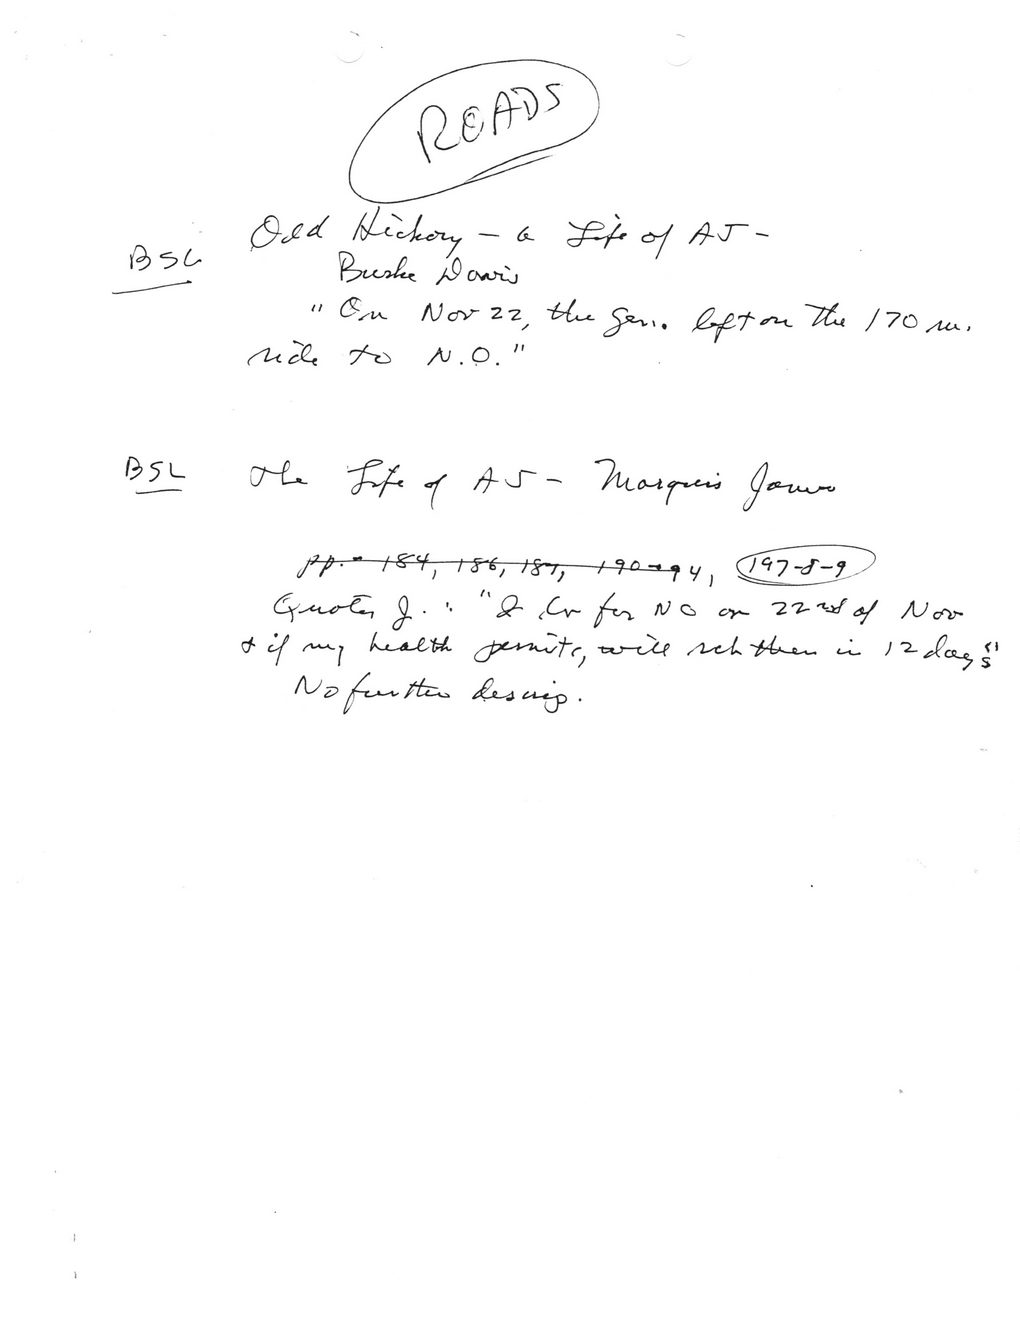 ROADS
BSL Old Hickory – a Life of AJ –
Burke Davis
"On Nov 22, the gen. left on the 170 m.
ride to N.O."
BSL The Life of AJ – Marquis James
pp. – 184, 186, 187, 190–94, 197-8-9
Quotes J.: "I lv for NO on 22nd of Nov
& if my health permits, will rch there in 12 days"
No further descrip.